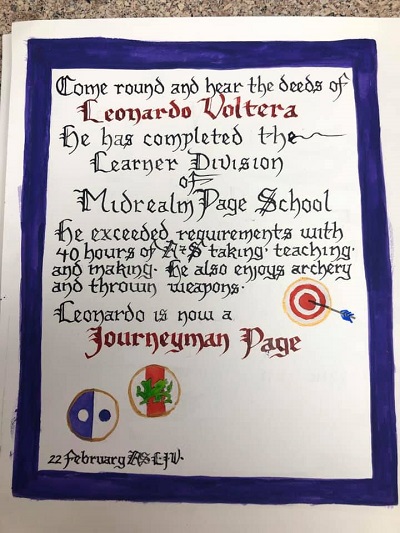 Come round and hear the deeds of
Leonardo Voltera
He has completed the
Learner Division
of
Midrealm Page School
He exceeded requirements with
40 hours of A+S taking, teaching,
and making. He also enjoys archery
and thrown weapons.
Leonardo is now a
Journeyman Page
22 February AS LIV.